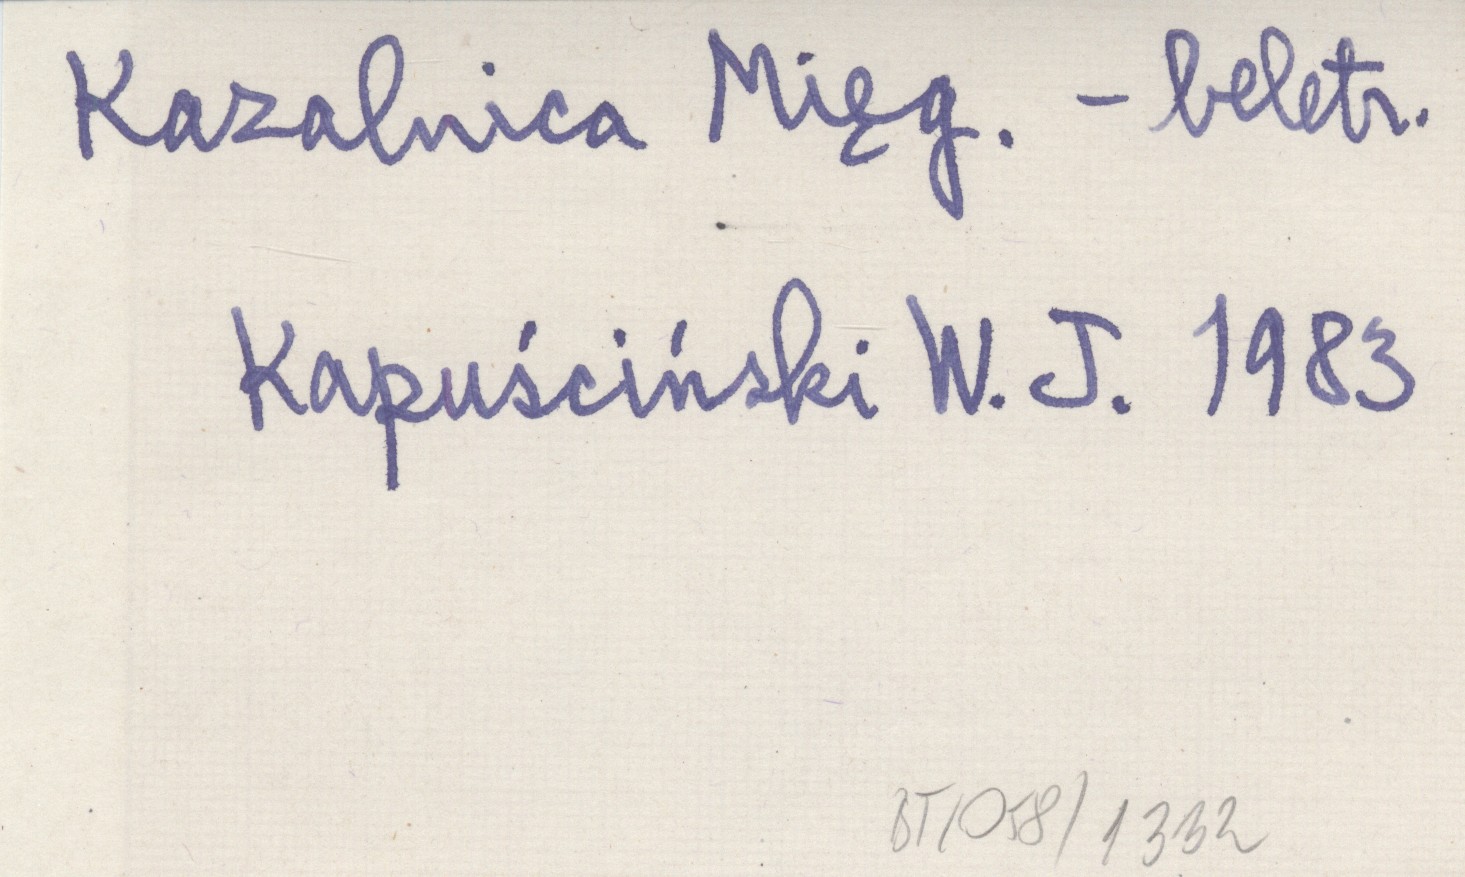 Kazalnica Mięg. - beletr.
Kapuściński W. J. 1983
BT/058/1332